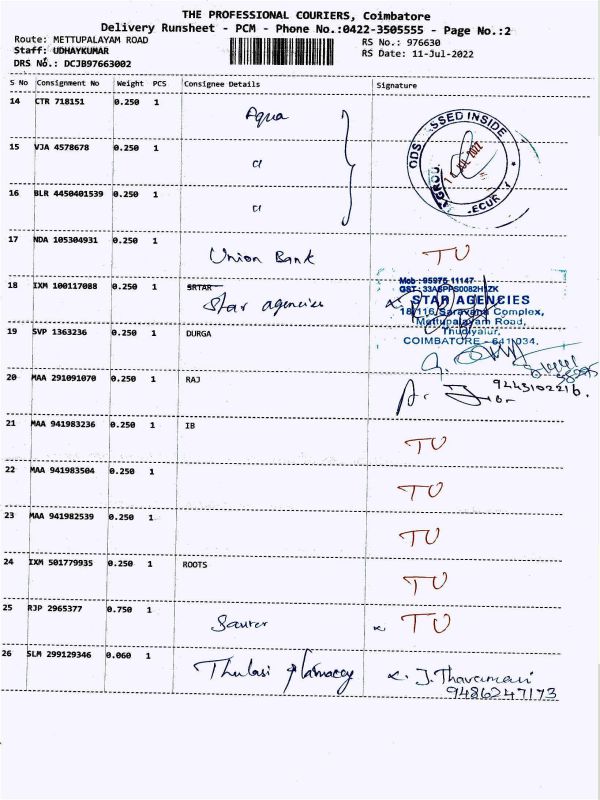 THE PROFESSIONAL COURIERS, Coimbatore
Delivery Runsheet - PCM - Phone No.:0422-3505555 - Page No.:2
Route: METTUPALAYAM ROAD
RS No.: 976630
Staff: UDHAYKUMAR
RS Date: 11-Jul-2022
DRS No.: DCJB97663002
S No Consignment No Weight PCS Consignee Details Signature
14 CTR 718151 0.250 1 Aqua
SSED INSIDE
15 VJA 4578678 0.250 1 "
JUL 2022
16 BLR 4450401539 0.250 1 "
17 NDA 105304931 0.250 1 Union Bank TU
18 IXM 100117088 0.250 1 SRTAR
Star agencies
Mob : 95975 11147
STAR AGENCIES
18/116, Saravana Complex,
Mettupalayam Road,
Thudiyalur,
COIMBATORE - 641 034.
19 SVP 1363236 0.250 1 DURGA
20 MAA 291091070 0.250 1 RAJ
9443102216.
21 MAA 941983236 0.250 1 IB TU
22 MAA 941983504 0.250 1 TU
23 MAA 941982539 0.250 1 TU
24 IXM 501779935 0.250 1 ROOTS TU
25 RJP 2965377 0.750 1 Sauter TU
26 SLM 299129346 0.060 1 Thulasi pharmacy J. Thavamani
9486247173